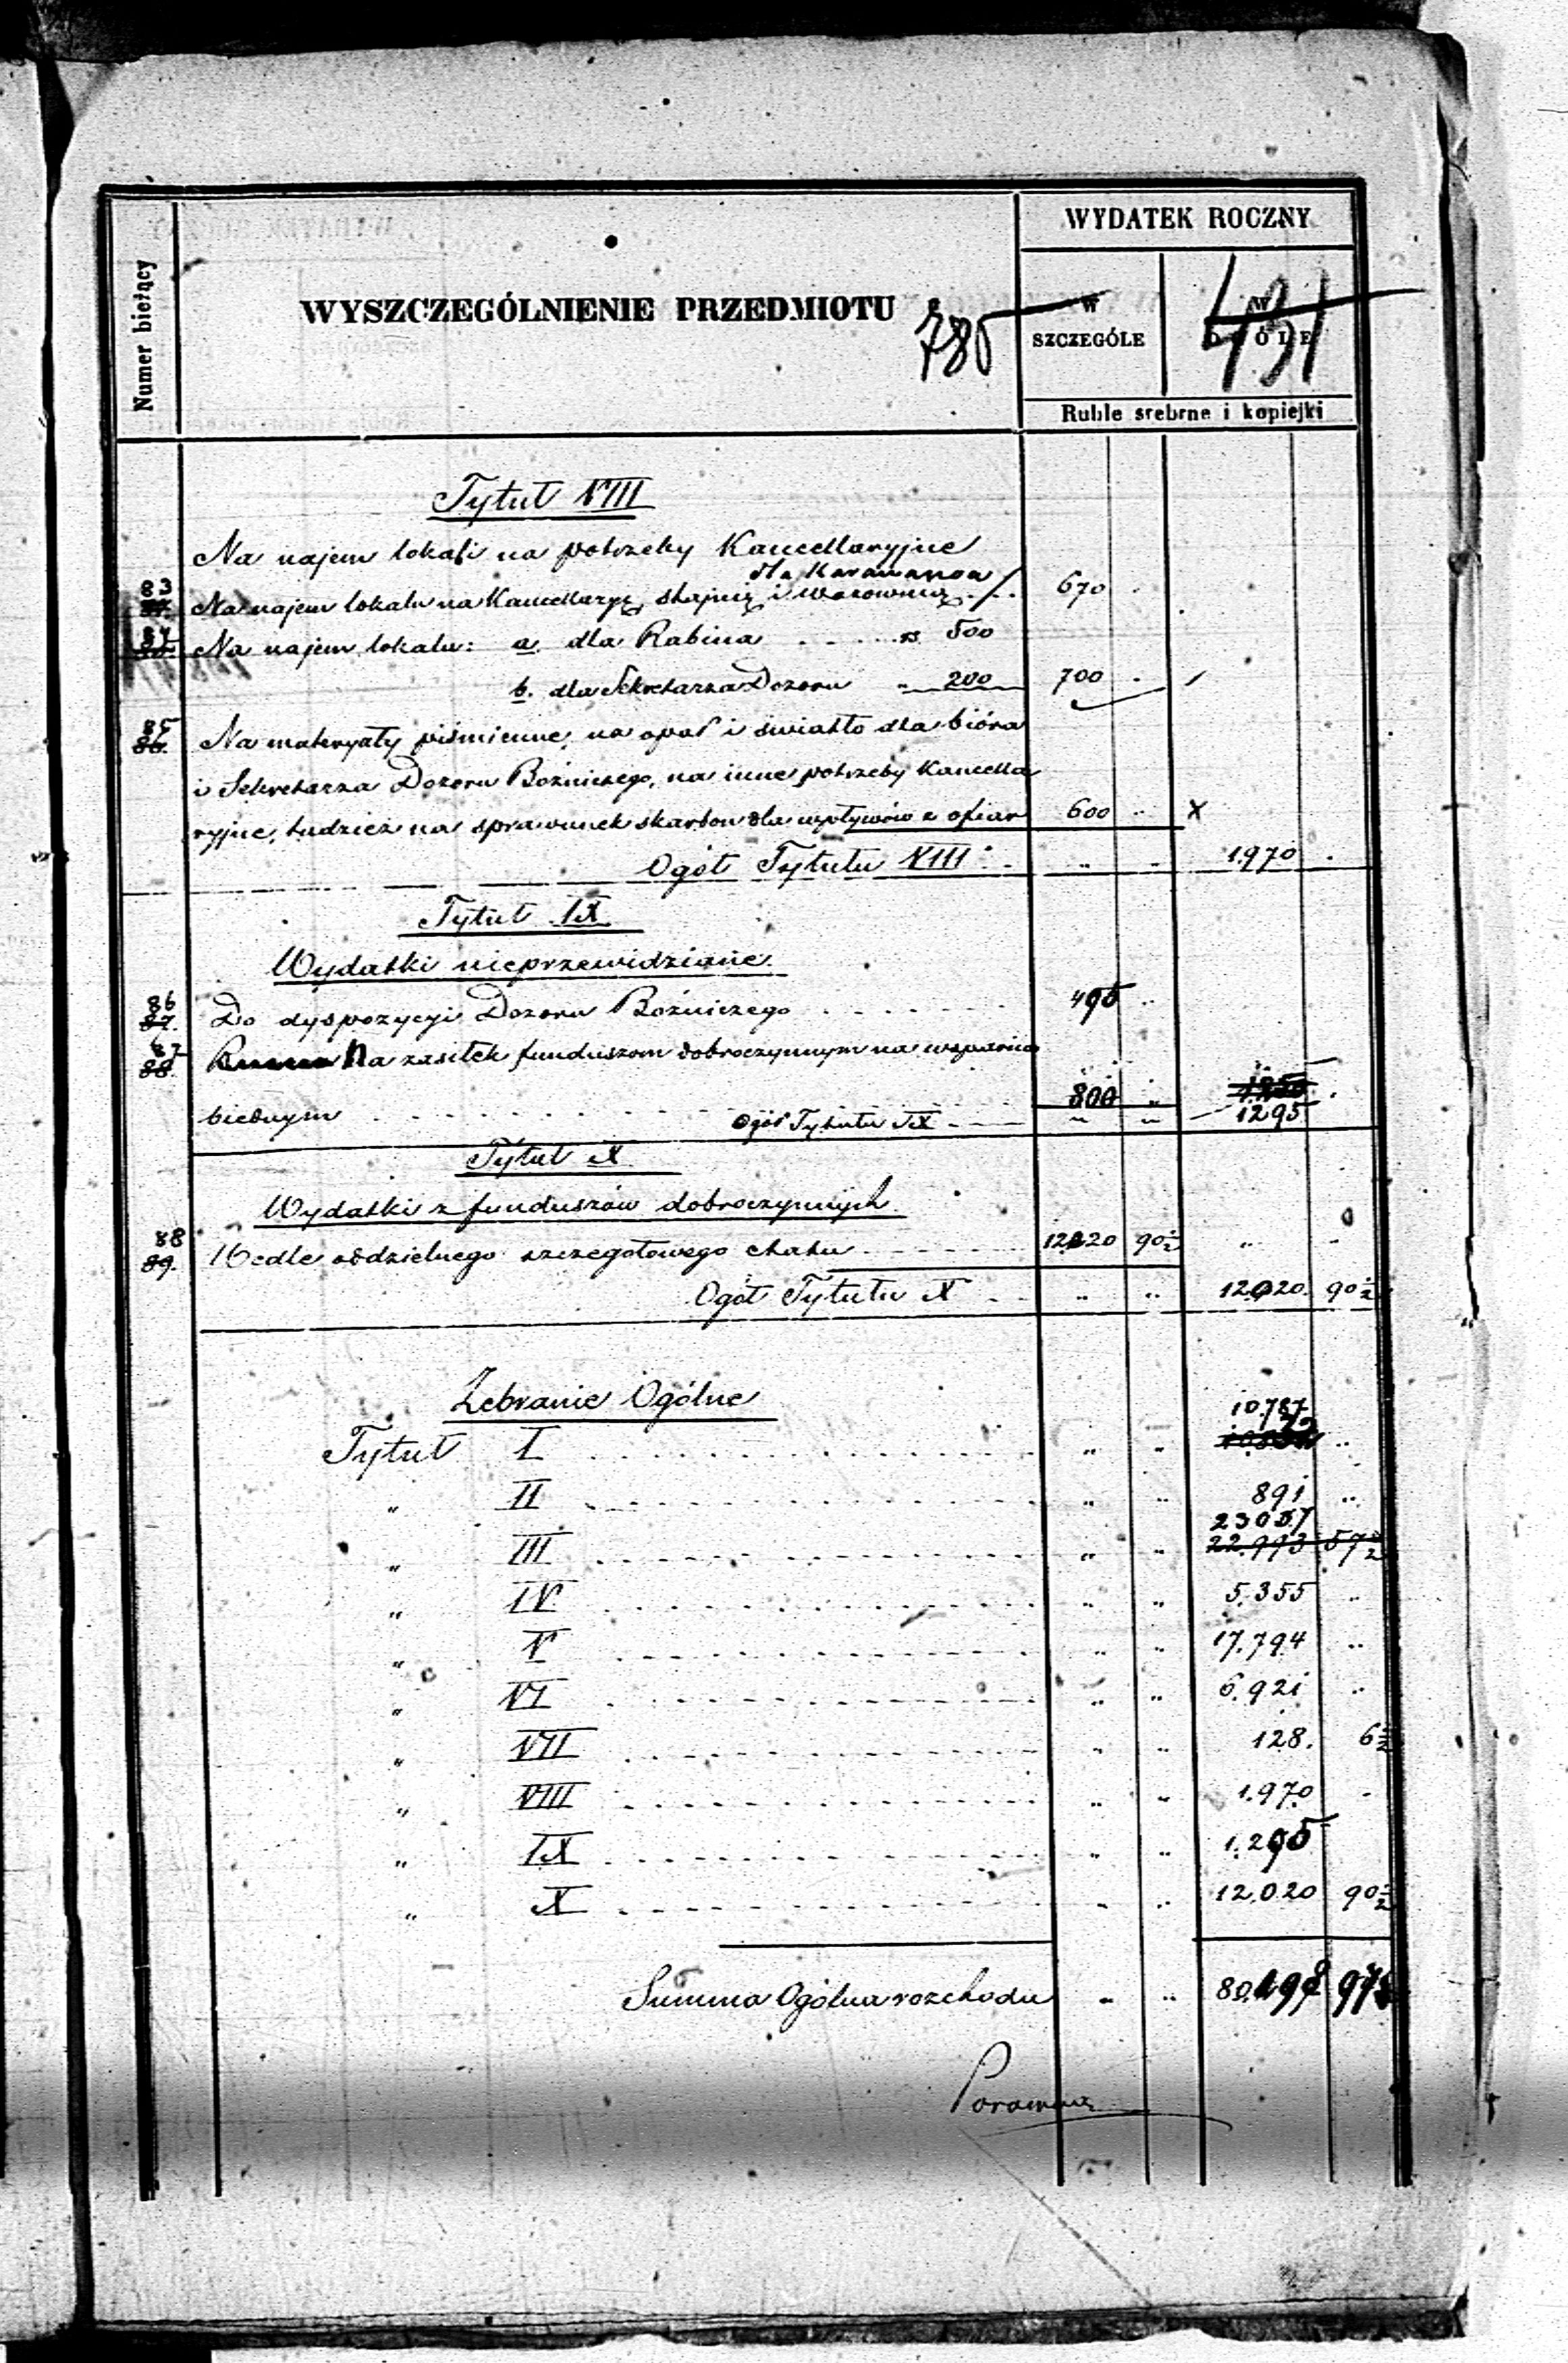 WYDATEK ROCZNY
Numer bieżący
WYSZCZEGÓLNIENIE PRZEDMIOTU
785
W SZCZEGÓLE
W OGÓLE
431
Ruble srebrne i kopiejki
Tytuł VIII
Na najem lokali na potrzeby Kancellaryjne
dla Karawanoa
83 Na najem lokalu na Kancellaryę, stajnię i wozownię 670
84 Na najem lokalu: a. dla Rabina 500
b. dla Sekretarza Dozoru " 200 700
85 86. Na materyały piśmienne, na opał i światło dla bióra
i Sekretarza Dozoru Bożniczego, na inne potrzeby Kancella
ryjne, tudzież na sprawunek skarbon dla wpływów z ofiar 600 " X
Ogół Tytułu VIII " " 1.970
Tytuł IX
Wydatki nieprzewidziane
86 87. Do dyspozycyi Dozoru Bożniczego 495 "
87 88. Na zasiłek funduszom dobroczynnym na wsparcie
biednym 800 "
Ogół Tytułu IX " " 1295
Tytuł X
Wydatki z funduszów dobroczynnych
88 89. Wedle oddzielnego szczegółowego etatu 12020 90½ " "
Ogół Tytułu X " " 12.020. 90½
Zebranie Ogólne
10.787
Tytuł I " " "
" II " " 891 "
23037
" III " " 22.993 57½
" IV " " 5.355 "
" V " " 17.794 "
" VI " " 6.921 "
" VII " " 128. 6½
" VIII " " 1.970 "
" IX " " 1.295
" X " " 12.020 90½
Summa Ogólna rozchodu " "